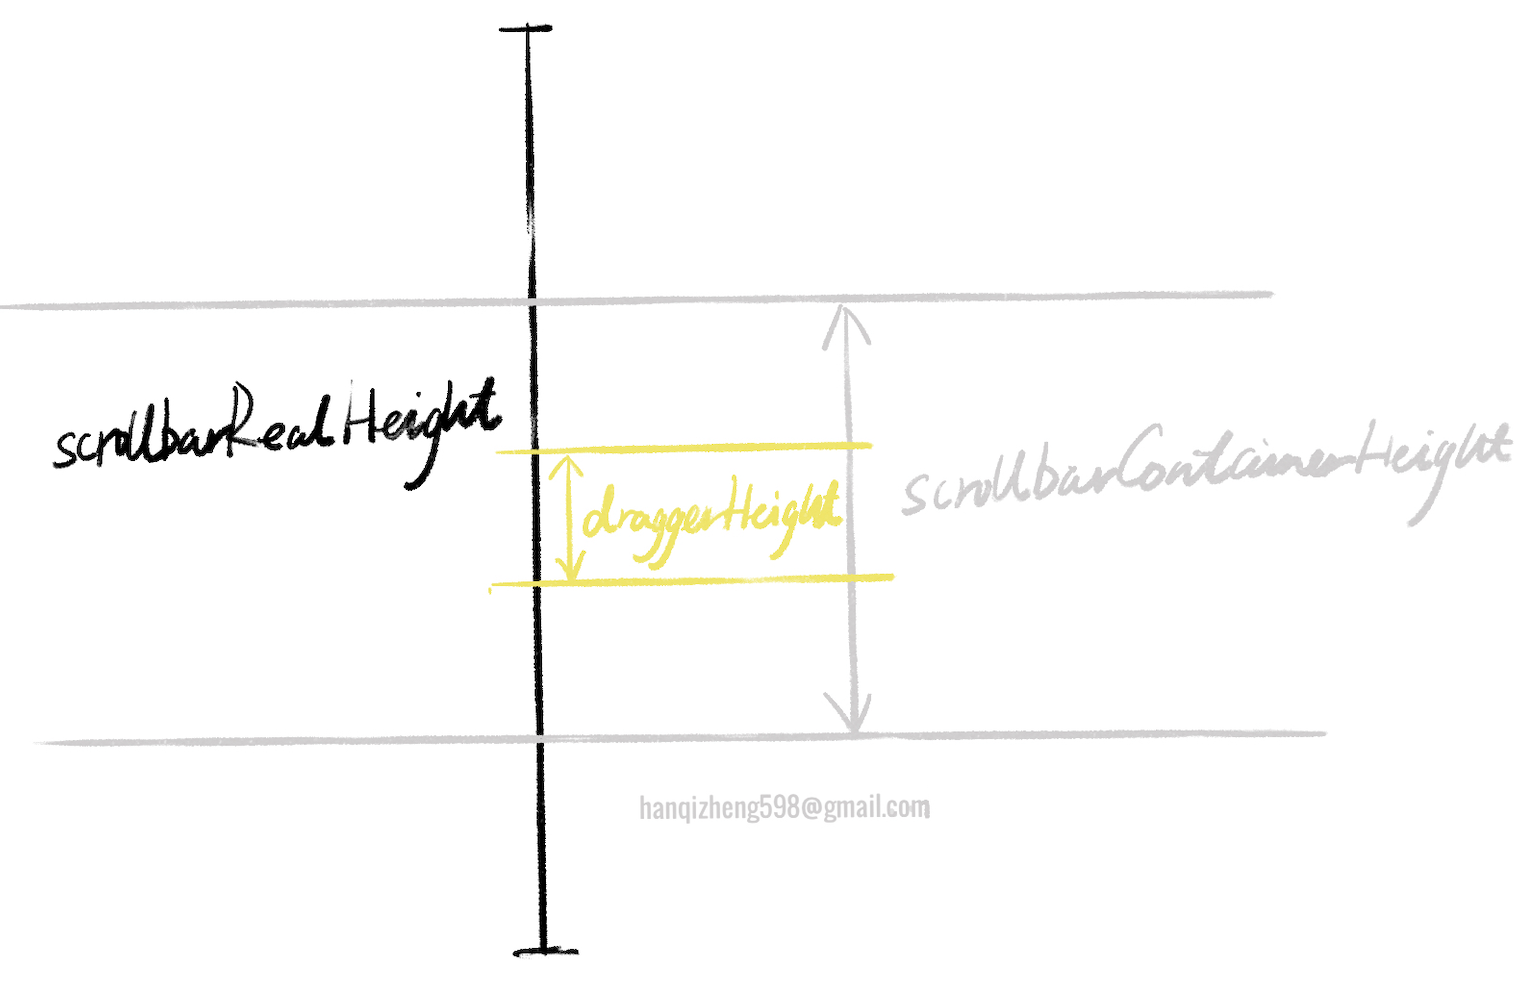 scrollbarRealHeight
draggerHeight
scrollbarContainerHeight
hanqizheng598@gmail.com